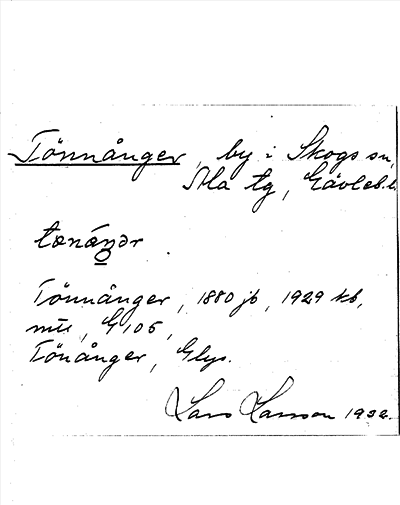 Tönnånger, by i Skogs sn,
Ala tg, Gävleb. l.
tönnånger, 1880 jb, 1929 kb,
mtl, G 105,
Tönånger, Glys.
Lars Larsson 1932.